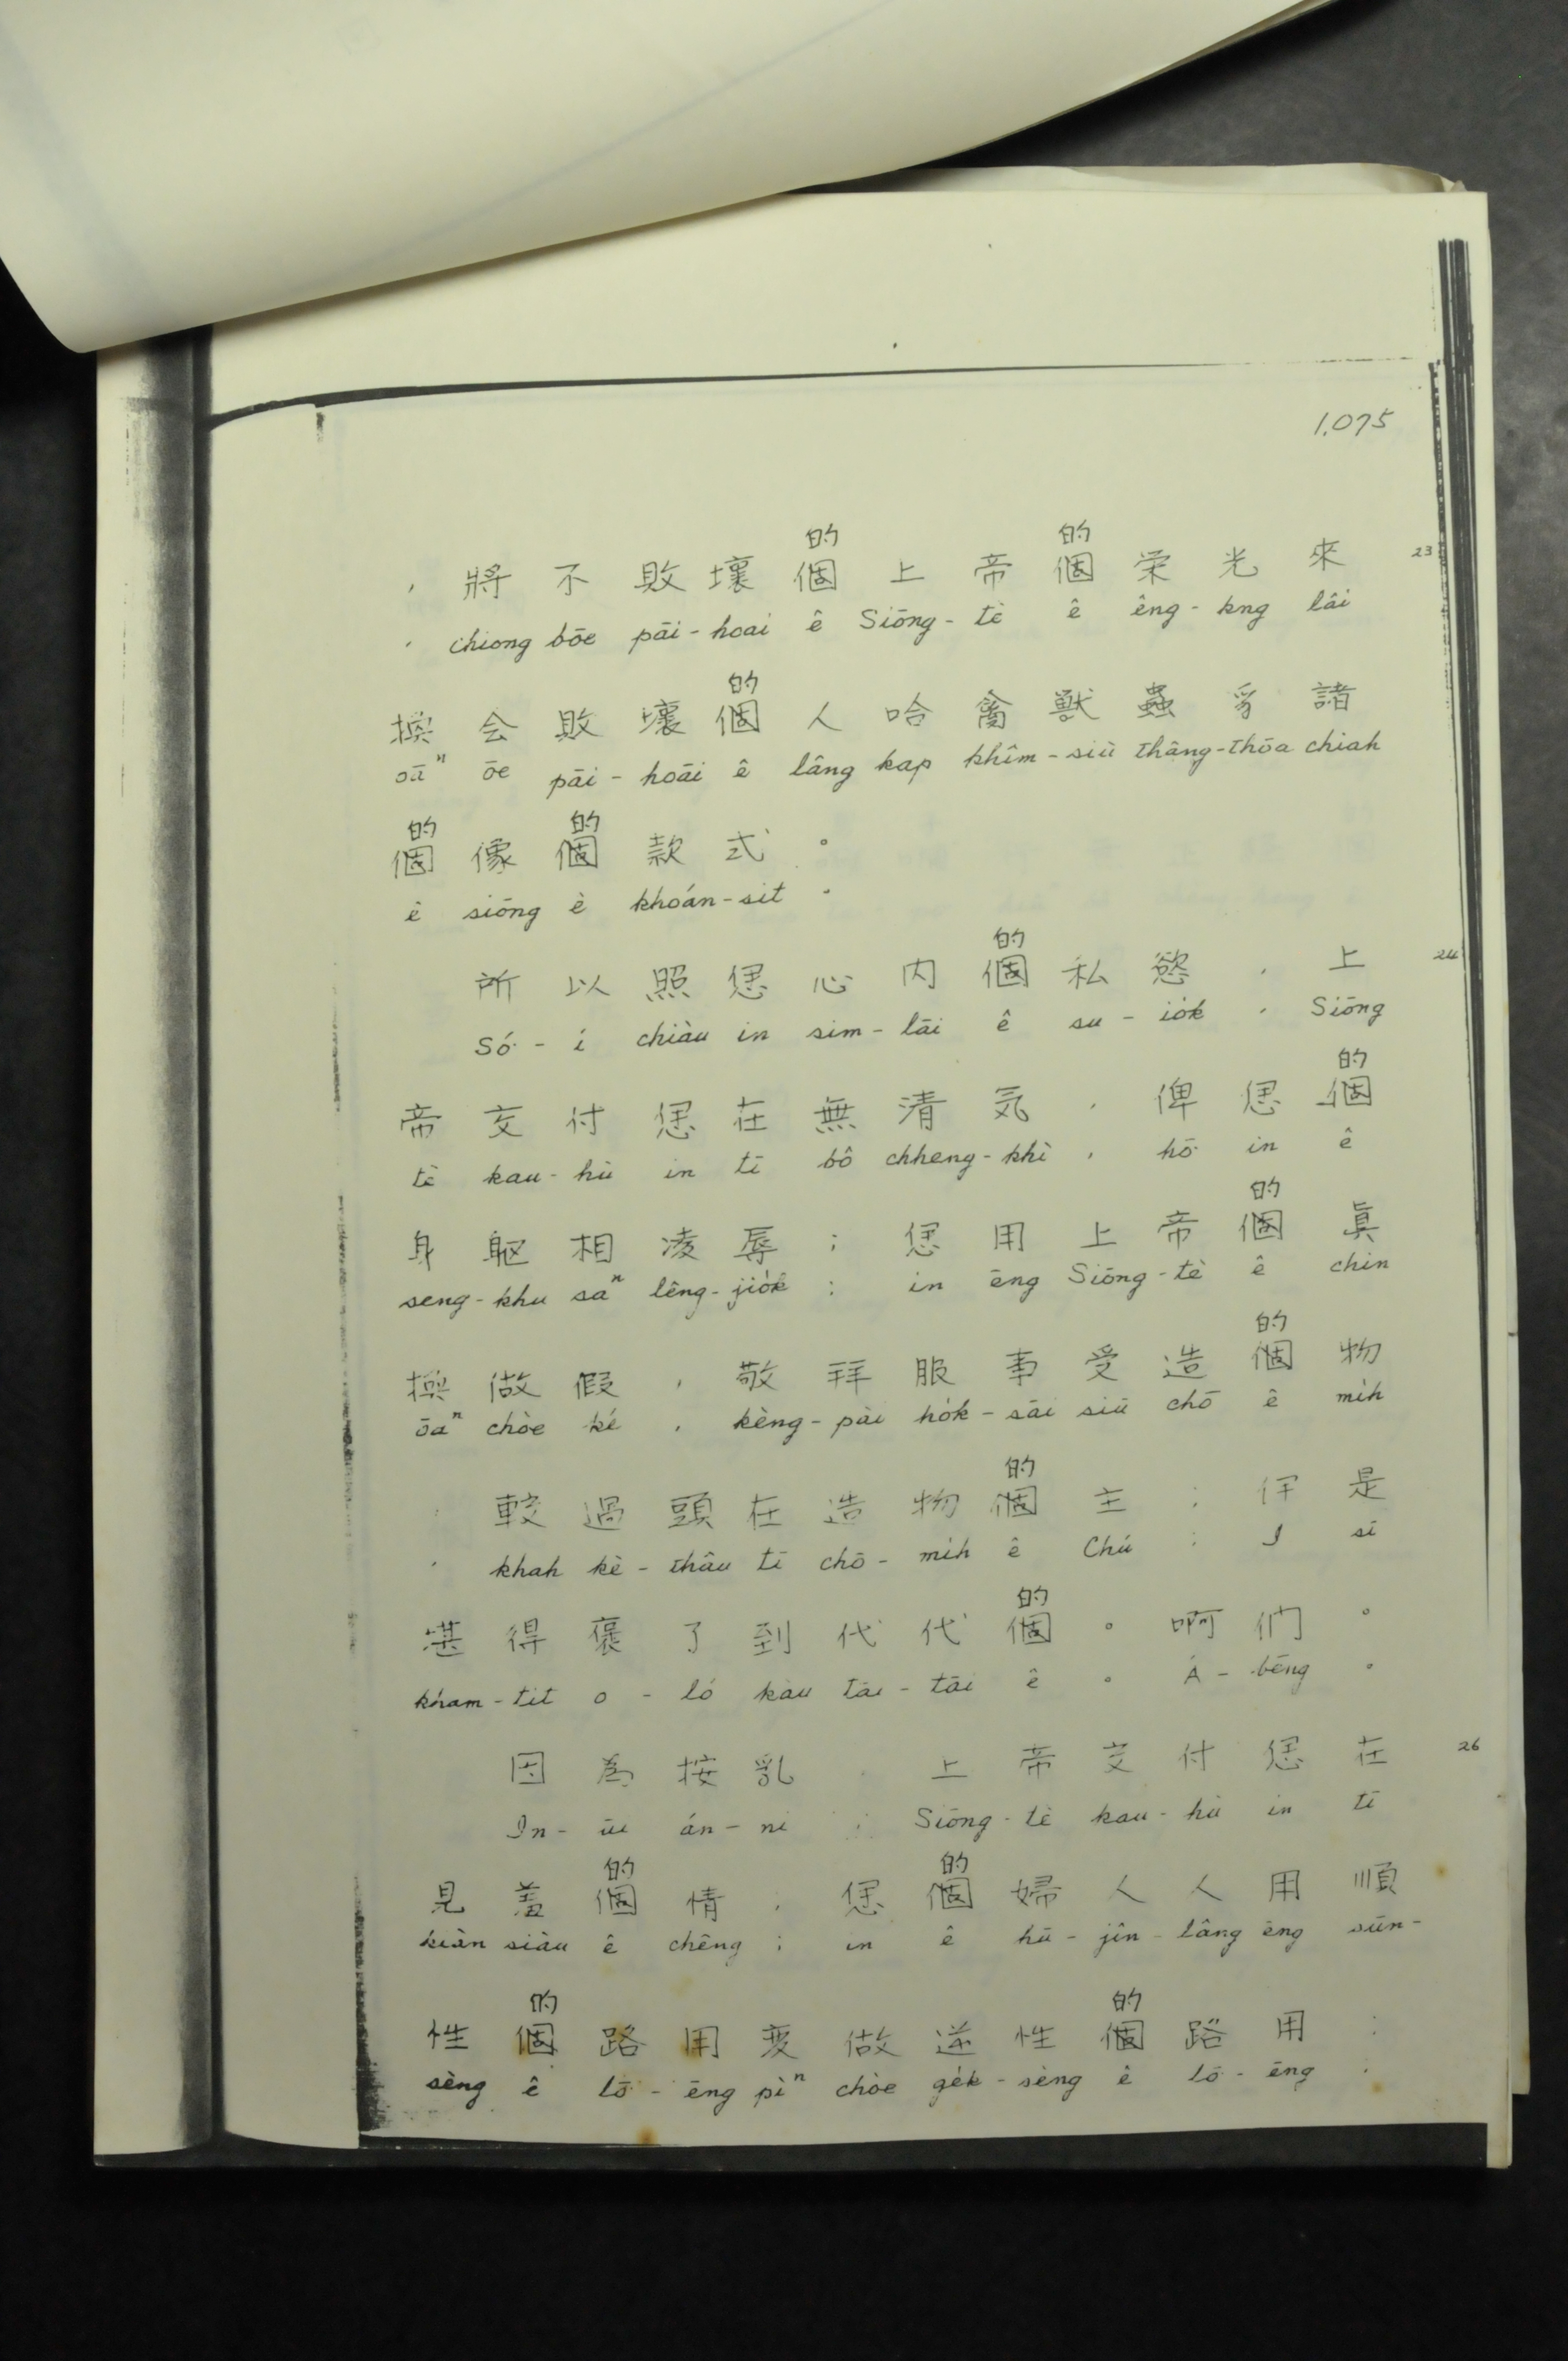 1.075
的 的
, 將 不 敗 壞 個 上 帝 個 栄 光 來 23
, chiong bōe pāi-hoai ê Siōng-tè ê êng-kng lâi
的
換 会 敗 壞 個 人 哈 禽 獸 蟲 豸 諸
oāⁿ ōe pāi-hoāi ê lâng kap khîm-siù thâng-thōa chiah
的 的
個 像 個 款 式 。
ê siōng ê khoán-sit 。
的
所 以 照 㑑 心 内 個 私 慾 , 上 24
Só͘-í chiàu in sim-lāi ê su-io̍k , Siōng
的
帝 交 付 㑑 在 無 清 気 , 俾 㑑 個
tè kau-hù in tī bô chheng-khì , hō͘ in ê
的
身 軀 相 凌 辱 ; 㑑 用 上 帝 個 眞
seng-khu saⁿ lêng-jio̍k ; in ēng Siōng-tè ê chin
的
換 做 假 , 敬 拜 服 事 受 造 個 物
ōaⁿ chòe ké , kèng-pài ho̍k-sāi siū chō ê mi̍h
的
, 較 過 頭 在 造 物 個 主 ; 伊 是
, khah kè-thâu tī chō-mi̍h ê Chú ; I sī
的
堪 得 褒 了 到 代 代 個 。 啊 們 。
kham-tit o-ló kàu tāi-tāi ê 。 Á-bēng 。
因 為 按 乳 , 上 帝 交 付 㑑 在 26
In-ūi án-ni , Siōng-tè kau-hù in tī
的 的
見 羞 個 情 ; 㑑 個 婦 人 人 用 順
kiàn siàu ê chêng ; in ê hū-jîn-lâng ēng sūn-
的 的
性 個 路 用 変 做 逆 性 個 路 用 ;
sèng ê lō͘-ēng pìⁿ chòe ge̍k-sèng ê lō͘-ēng ;